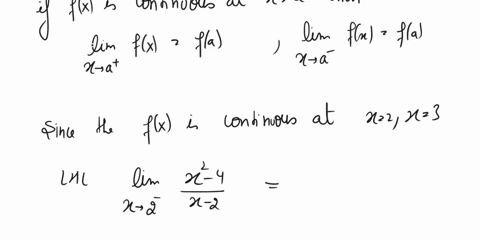 if f(x) is continuous at
lim x→a⁺ f(x) = f(a) , lim x→a⁻ f(x) = f(a)
Since the f(x) is continuous at x=2, x=3
LHL lim x→2⁻ x²-4/x-2 =